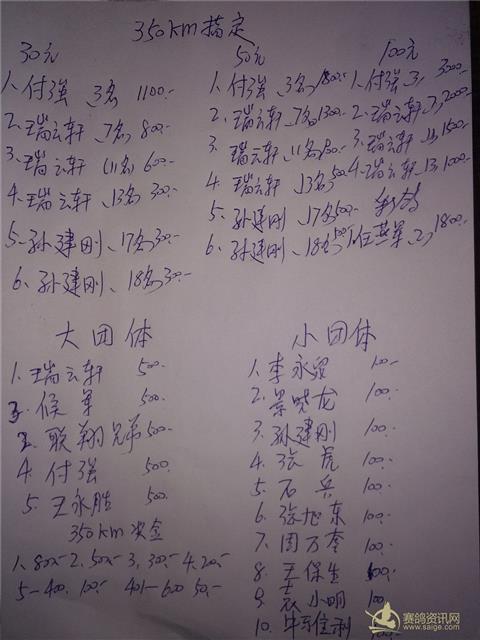 350km 搞定
30元
1、付强 3名 1100.-
2、瑞云轩 7名 800.-
3、瑞云轩 11名 600.-
4、瑞云轩、13名 300.-
5、孙建刚、17名 300.-
6、孙建刚、18名 300.-
50元
1、付强 3名 1800.-
2、瑞云轩、7名 1300.-
3、瑞云轩、11名
4、瑞云轩、13名 500
5、孙建刚、17名 500.-
6、孙建刚、18名 500
100元
1、付强 3、3000.-
2、瑞云轩、7、2000.-
3、瑞云轩、11、1500.-
4、瑞云轩、13、1000.-
1、任燕军、2、1800.-
大团体
1、瑞云轩 500.-
2、候军 500.
3、联翔兄弟 500.-
4、付强 500.
5、王永胜 500.
350km 奖金
1、800.- 2、500.- 3、300.- 4、200.-
5-400、100.- 401-600 50.-
小团体
1、李永 100.-
2、景晓龙 100.
3、孙建刚 100.
4、张虎 100.
5、石兵 100.
6、张旭东 100.
7、周万奎 100.
8、王保生 100.
9、袁小明 100.
10、牛 利 100.
赛鸽资讯网
www.saige.com